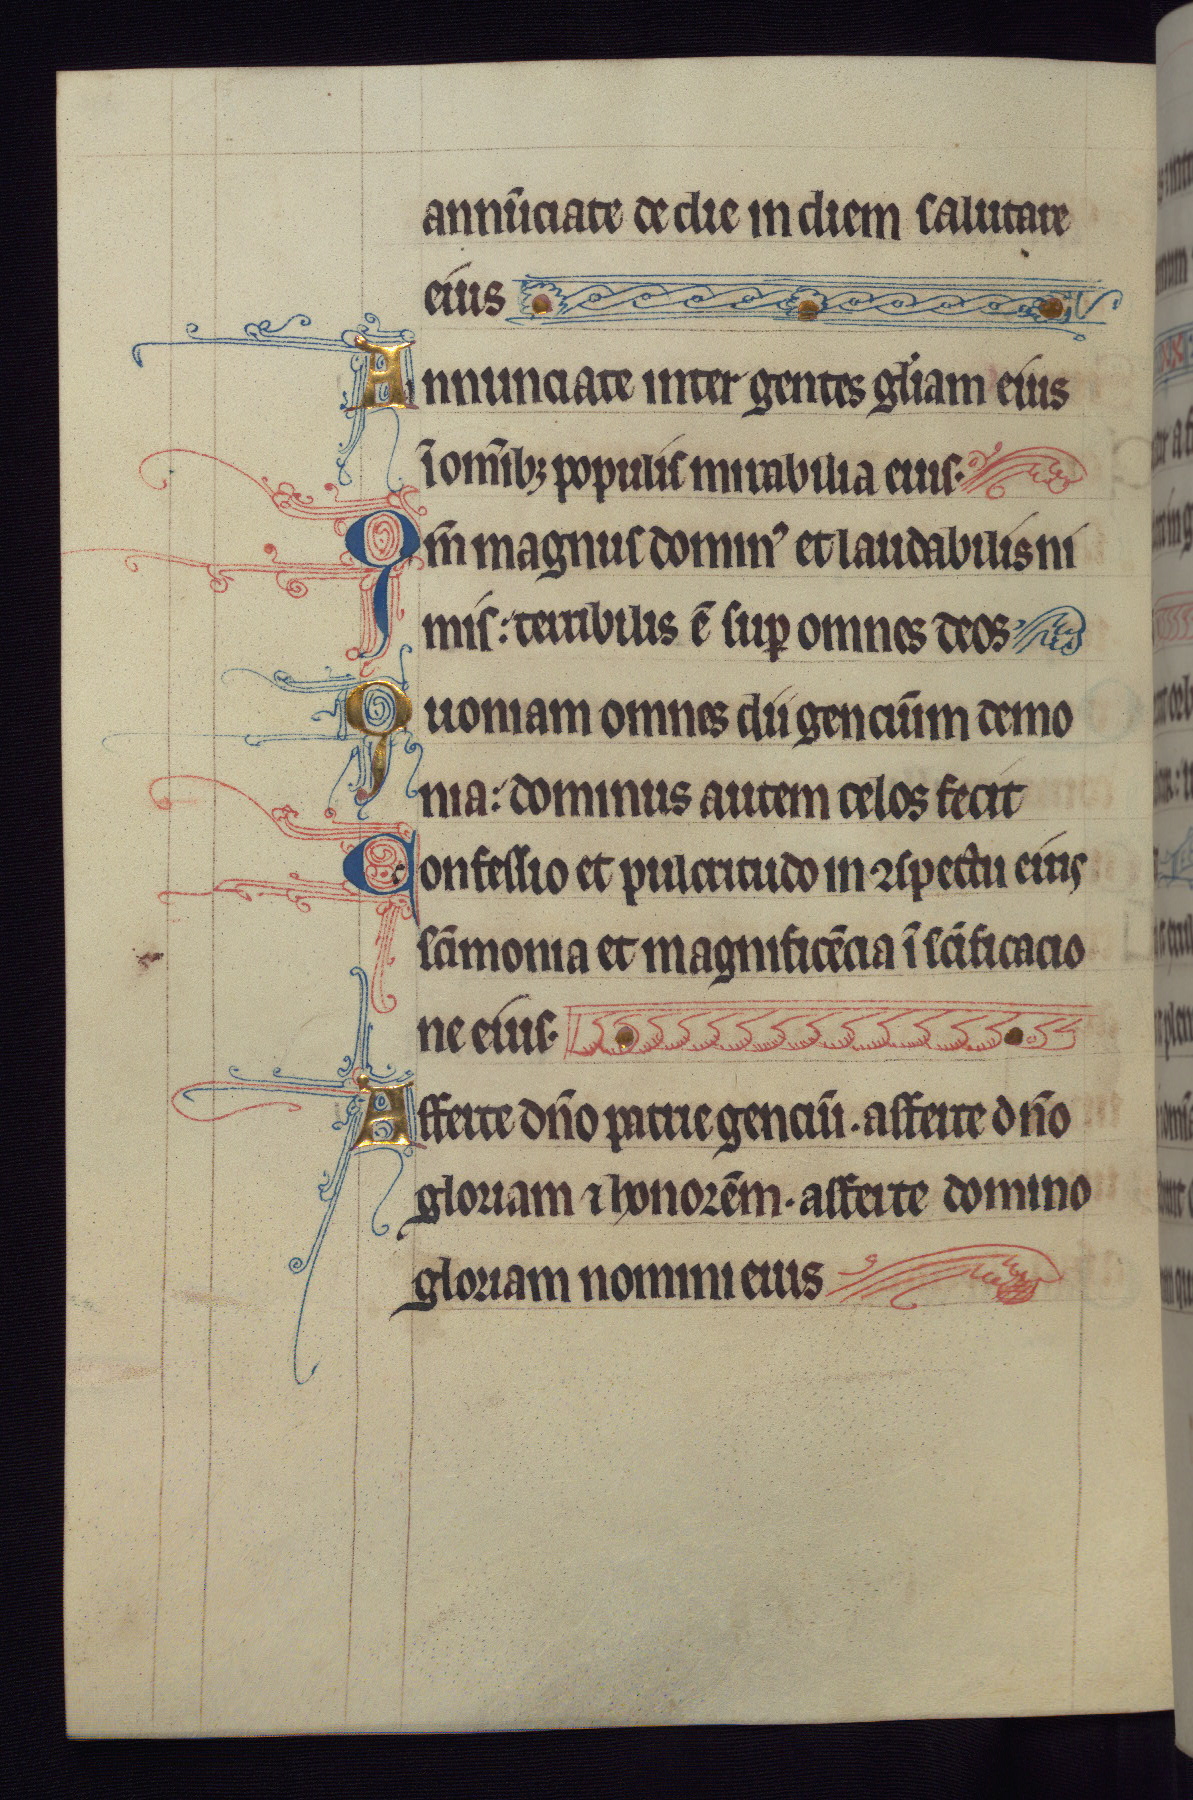 annu̅ciate de die in diem salutare
eius
Annunciate inter gentes gl̅iam eius
i̅ om̅ib; populis mirabilia eius·
Qm̅ magnus domin⁹ et laudabilis ni
mis: terribilis e̅ sup̲ omnes deos
Quoniam omnes dii genciu̅m demo
nia: dominus autem celos fecit
Confessio et pulcritudo in ꝯspectu eius
sc̅imonia et magnifice̅cia i̅ sc̅ificacio
ne eius·
Afferte dn̅o patrie genciu̅· afferte dn̅o
gloriam ⁊ honore̅m· afferte domino
gloriam nomini eius